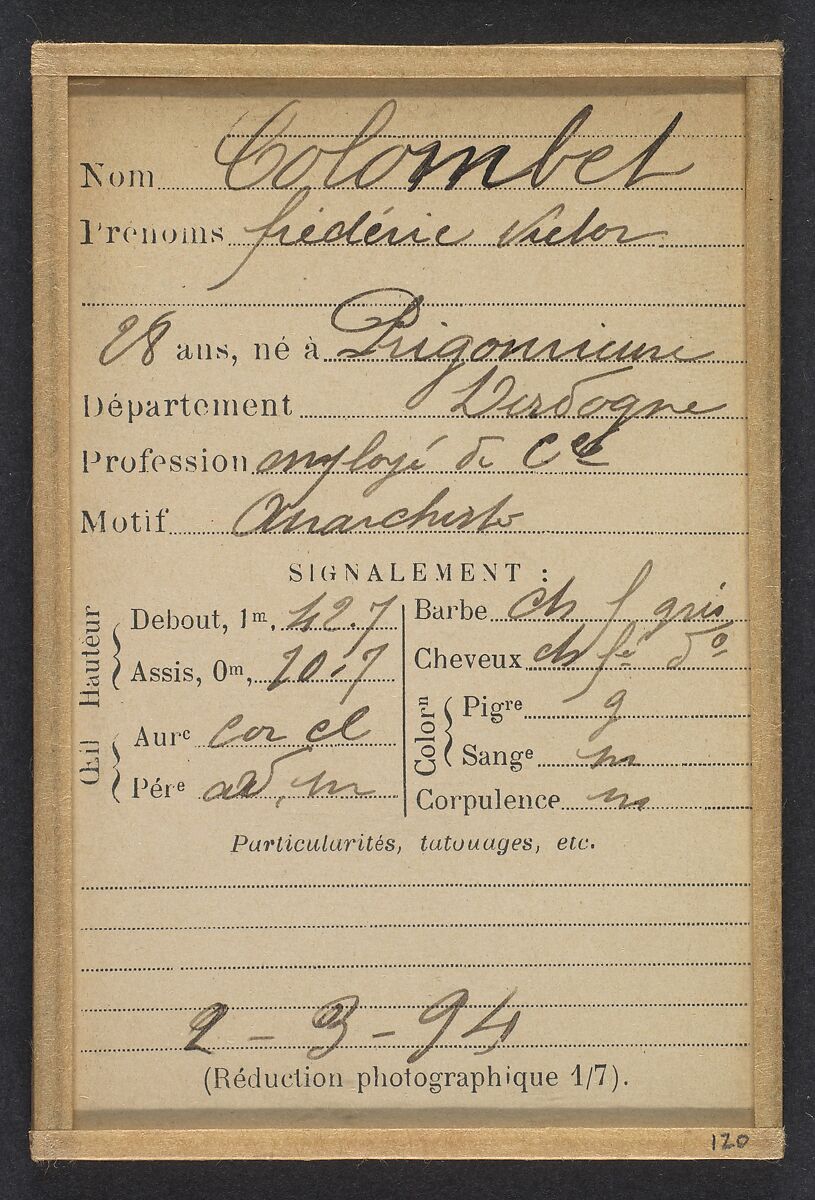 Nom Colombet
Prénoms frédéric Victor
28 ans, né à Prigonrieux
Département Dordogne
Profession employé de Cce
Motif Anarchiste
SIGNALEMENT :
Hauteur
Debout, 1m, 42.7
Assis, 0m, 70.7
Œil
Aure cor cl
Pére ard, m
Barbe ch f gris
Cheveux ch fé do
Colorn
Pigre g
Sange m
Corpulence m
Particularités, tatouages, etc.
2 - 3 - 94
(Réduction photographique 1/7).
120